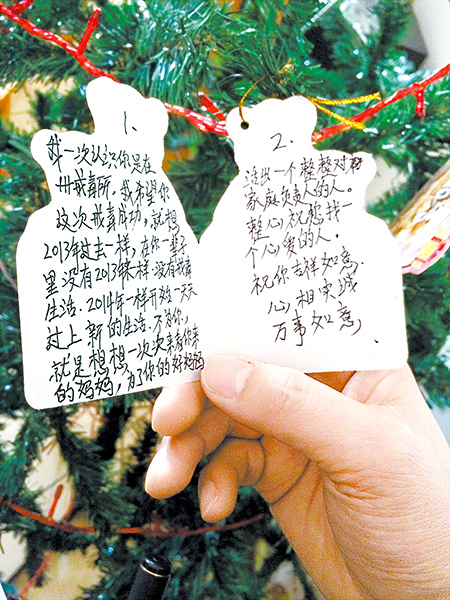 1.
第一次认识你是在
州戒毒所,我希望你
这次戒毒成功,就想
2013年过去一样,在你一辈子
里没有2013年一样没有戒毒
生活.2014年一样开始一天天
过上新的生活.不为你,
就是想想一次次来看你来
的妈妈,为了你的好妈妈
2.
送出一个整整对
家庭负责人的人。
整心祝愿找一
个心爱的人.
祝你吉祥如意.
心相实诚
万事如意,